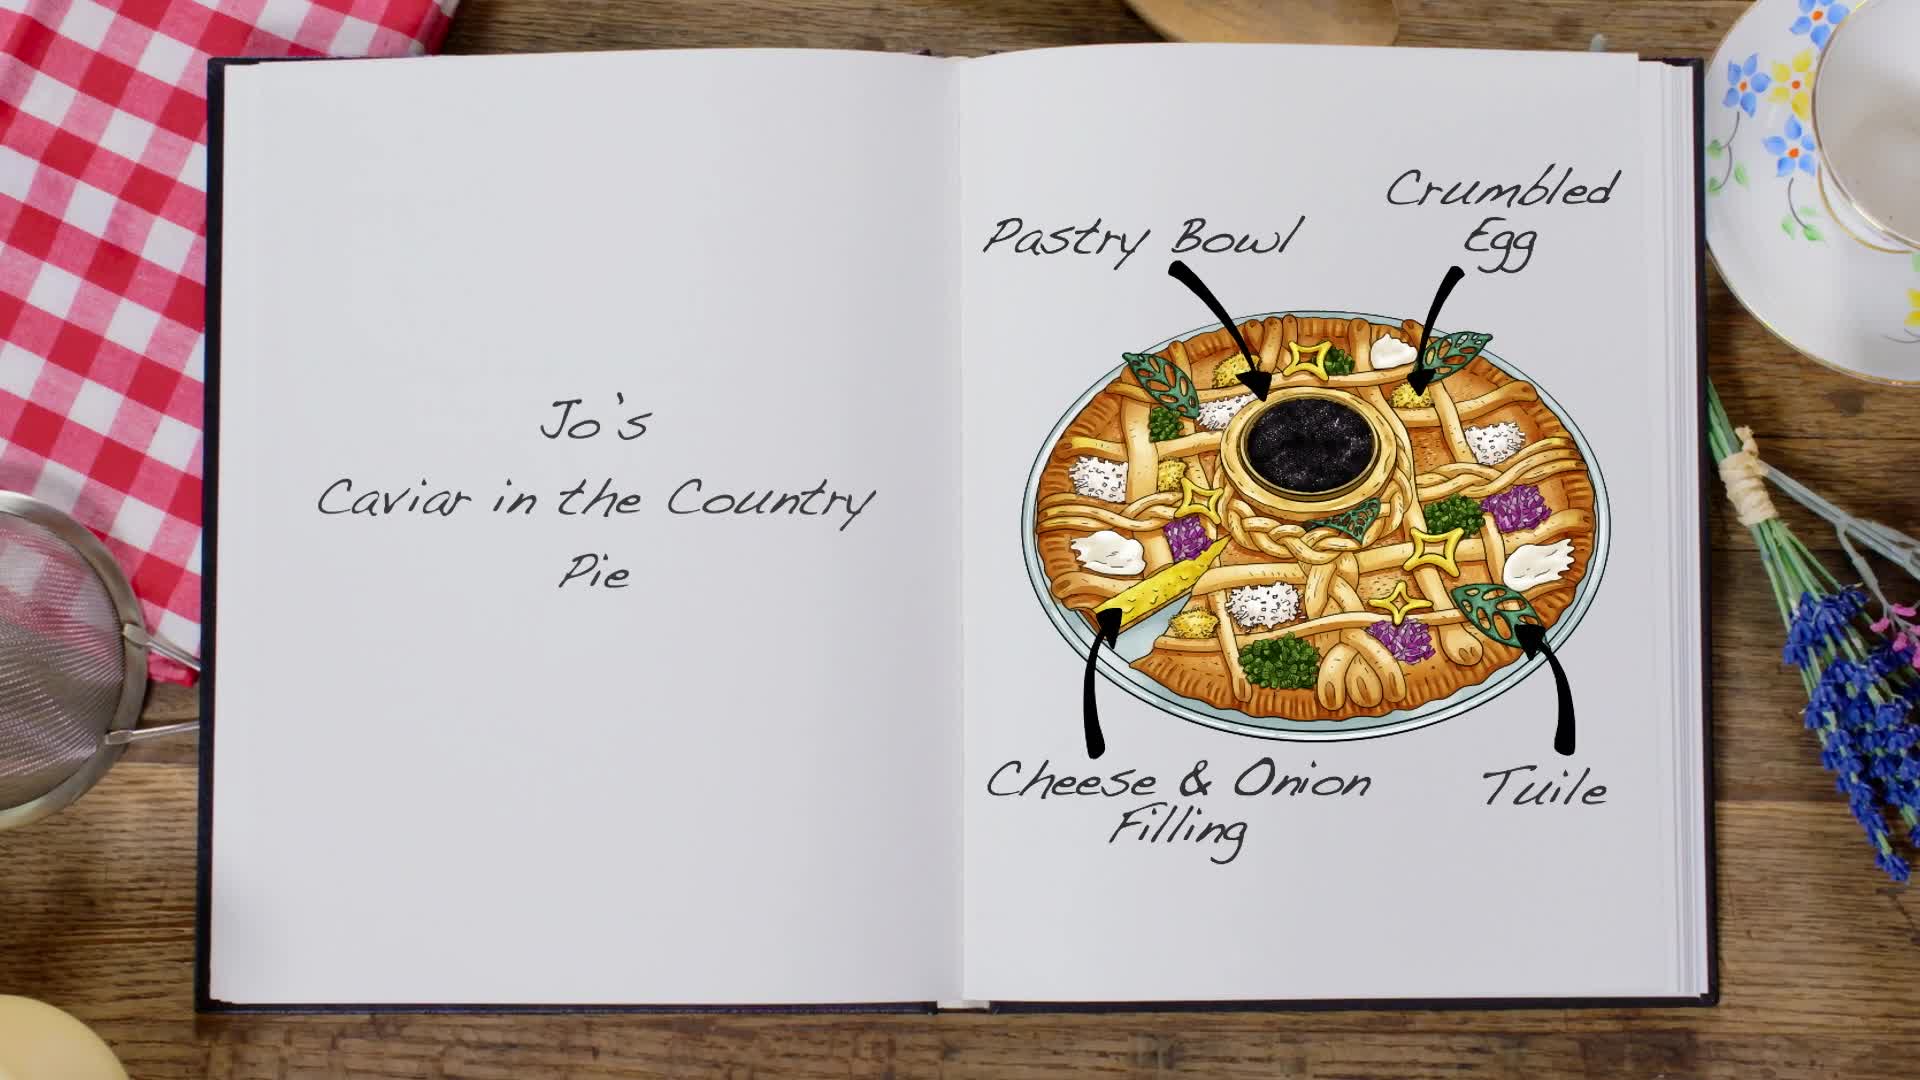 Jo's
Caviar in the Country
Pie
Pastry Bowl
Crumbled
Egg
Cheese & Onion
Filling
Tuile